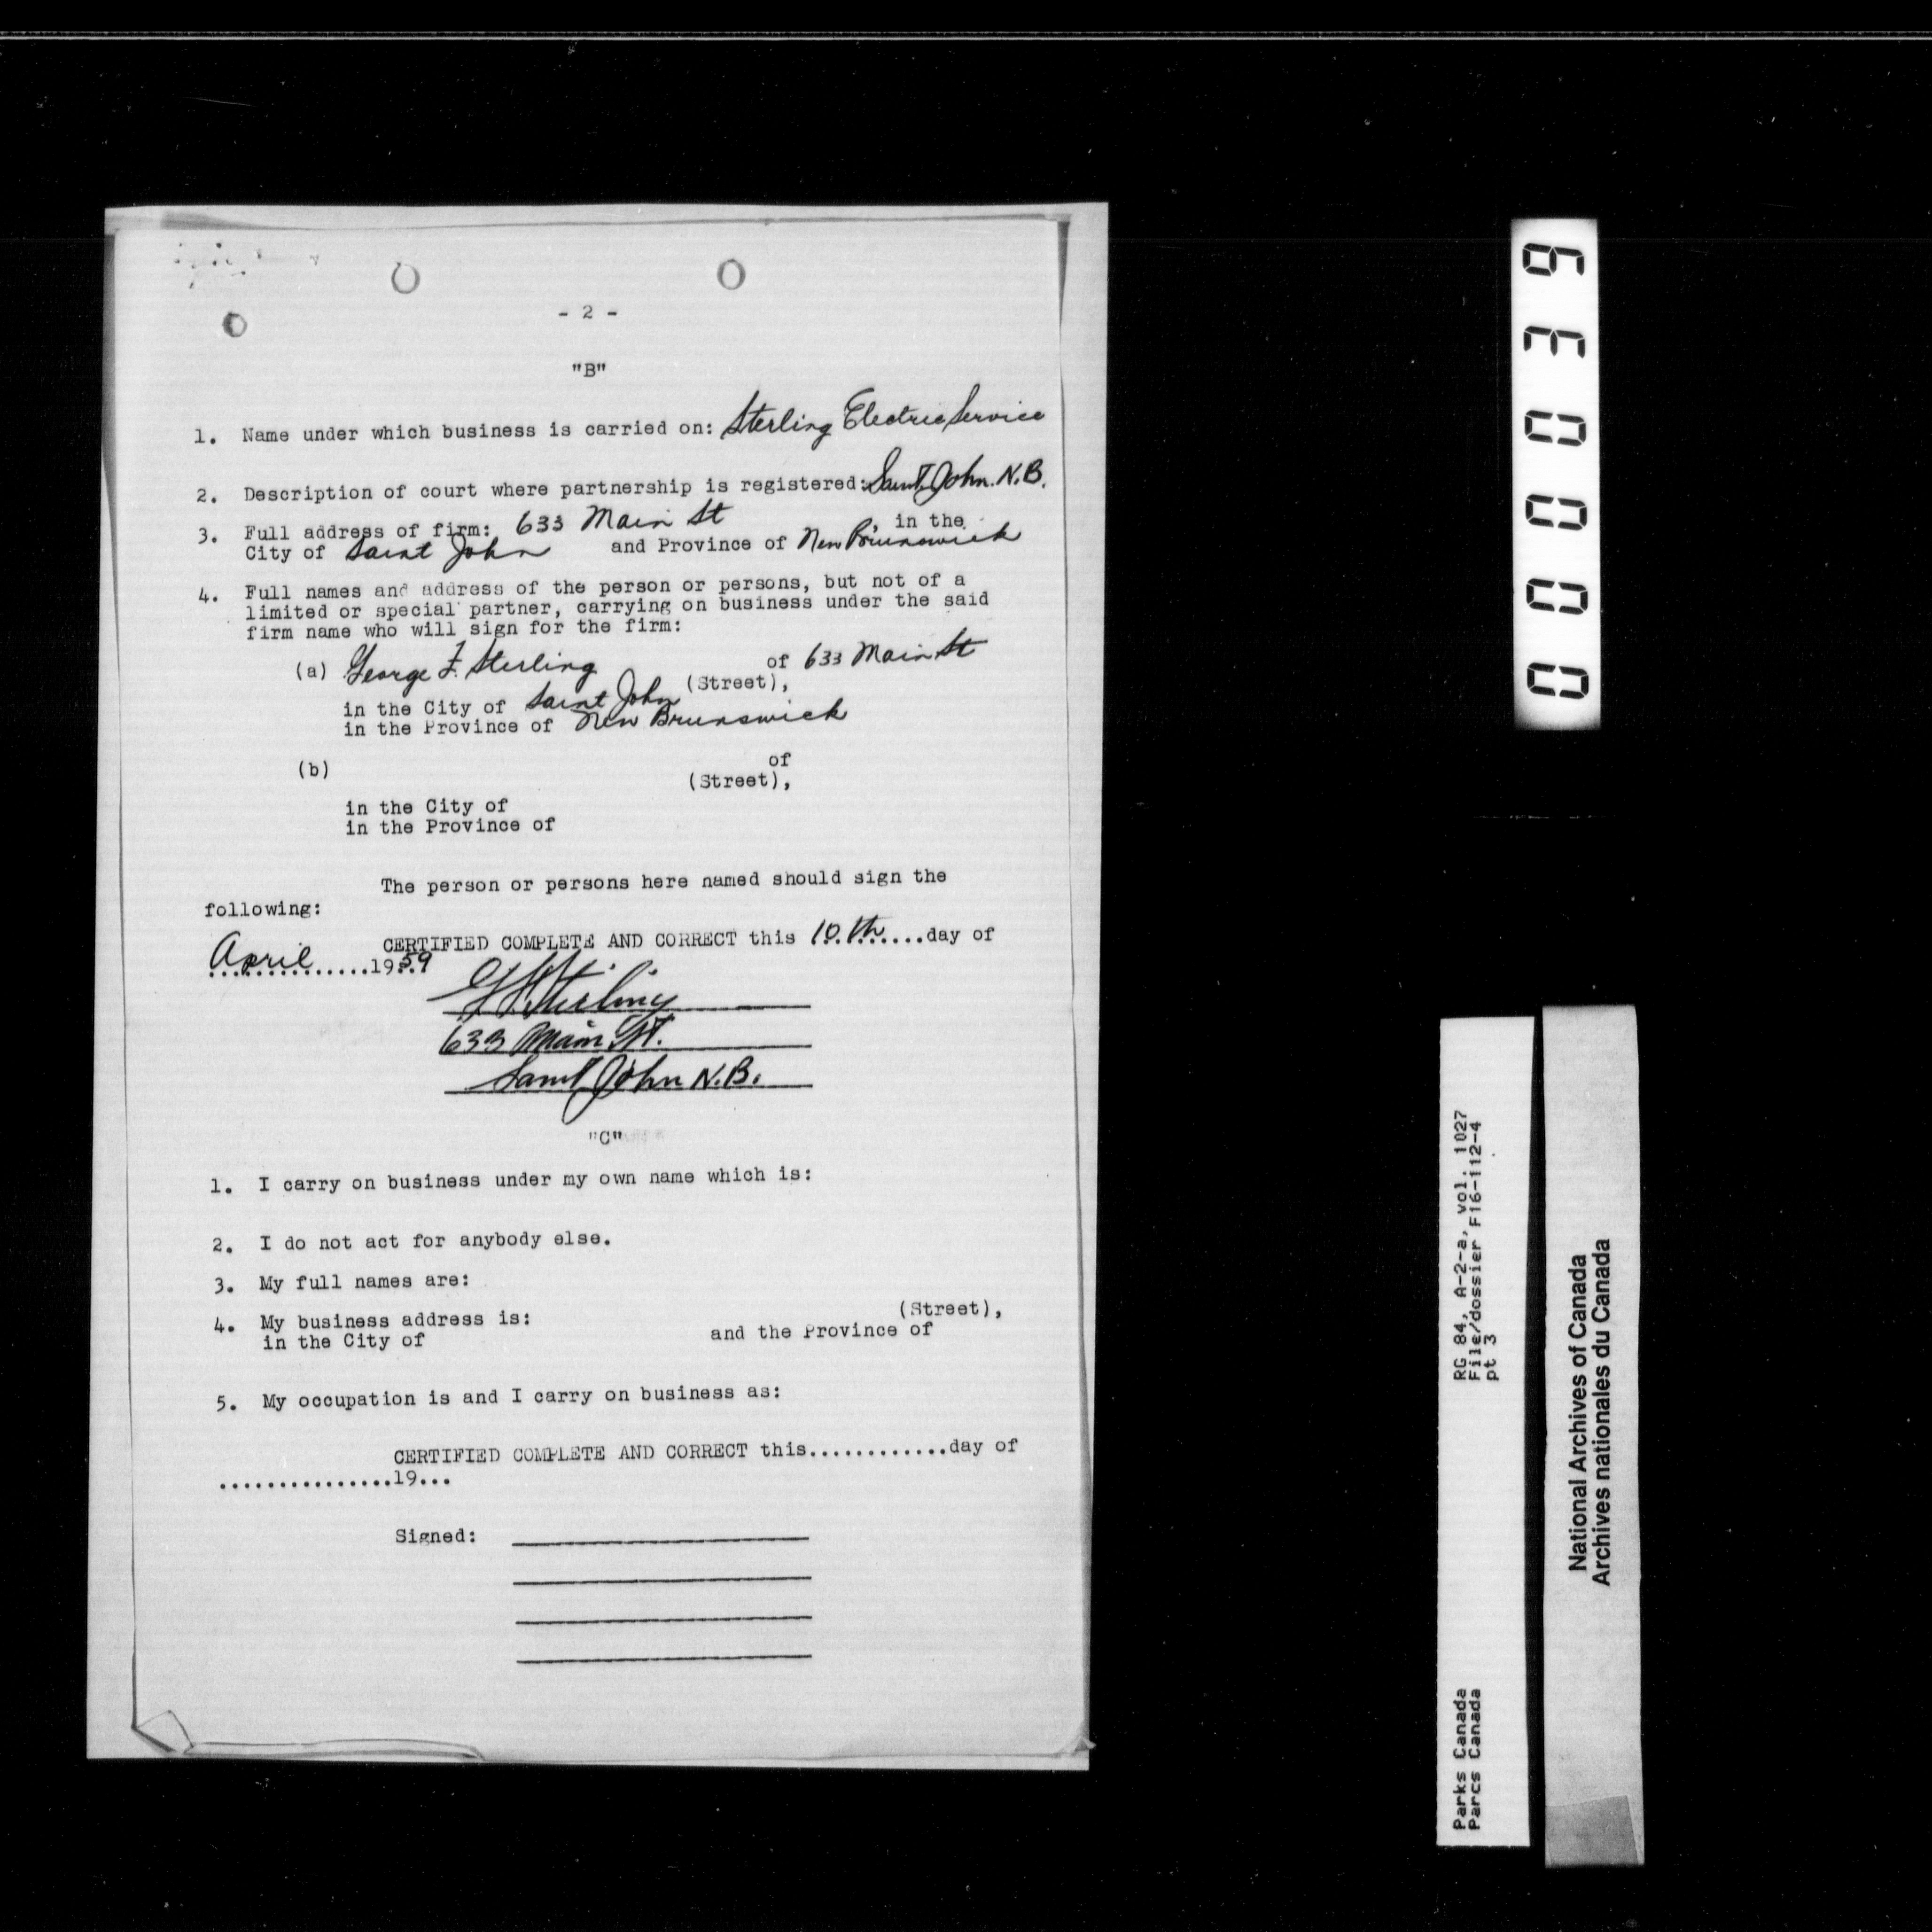 - 2 -
"B"
1. Name under which business is carried on: Sterling Electric Service
2. Description of court where partnership is registered: Saint John. N.B.
3. Full address of firm: 633 Main St , in the
City of Saint John and Province of New Brunswick
4. Full names and address of the person or persons, but not of a
limited or special partner, carrying on business under the said
firm name who will sign for the firm:
(a) George F. Sterling of 633 Main St
(Street),
in the City of Saint John
in the Province of New Brunswick
(b) of
(Street),
in the City of
in the Province of
The person or persons here named should sign the
following:
CERTIFIED COMPLETE AND CORRECT this 10th day of
April 1959
G F Sterling
633 Main St.
Saint John N.B.
"C"
1. I carry on business under my own name which is:
2. I do not act for anybody else.
3. My full names are:
4. My business address is: (Street),
in the City of and the Province of
5. My occupation is and I carry on business as:
CERTIFIED COMPLETE AND CORRECT this............day of
...............19...
Signed:
000039
RG 84, A-2-a, vol. 1027
File/dossier F16-112-4
pt 3
Parks Canada
Parcs Canada
National Archives of Canada
Archives nationales du Canada